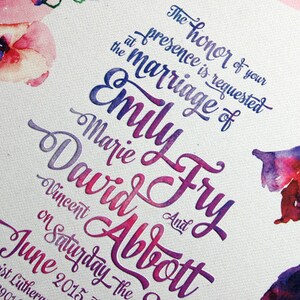 The honor of your
presence is requested
at the marriage of
Emily
Marie Fry
And
David
Vincent Abbott
on Saturday the
June 2015